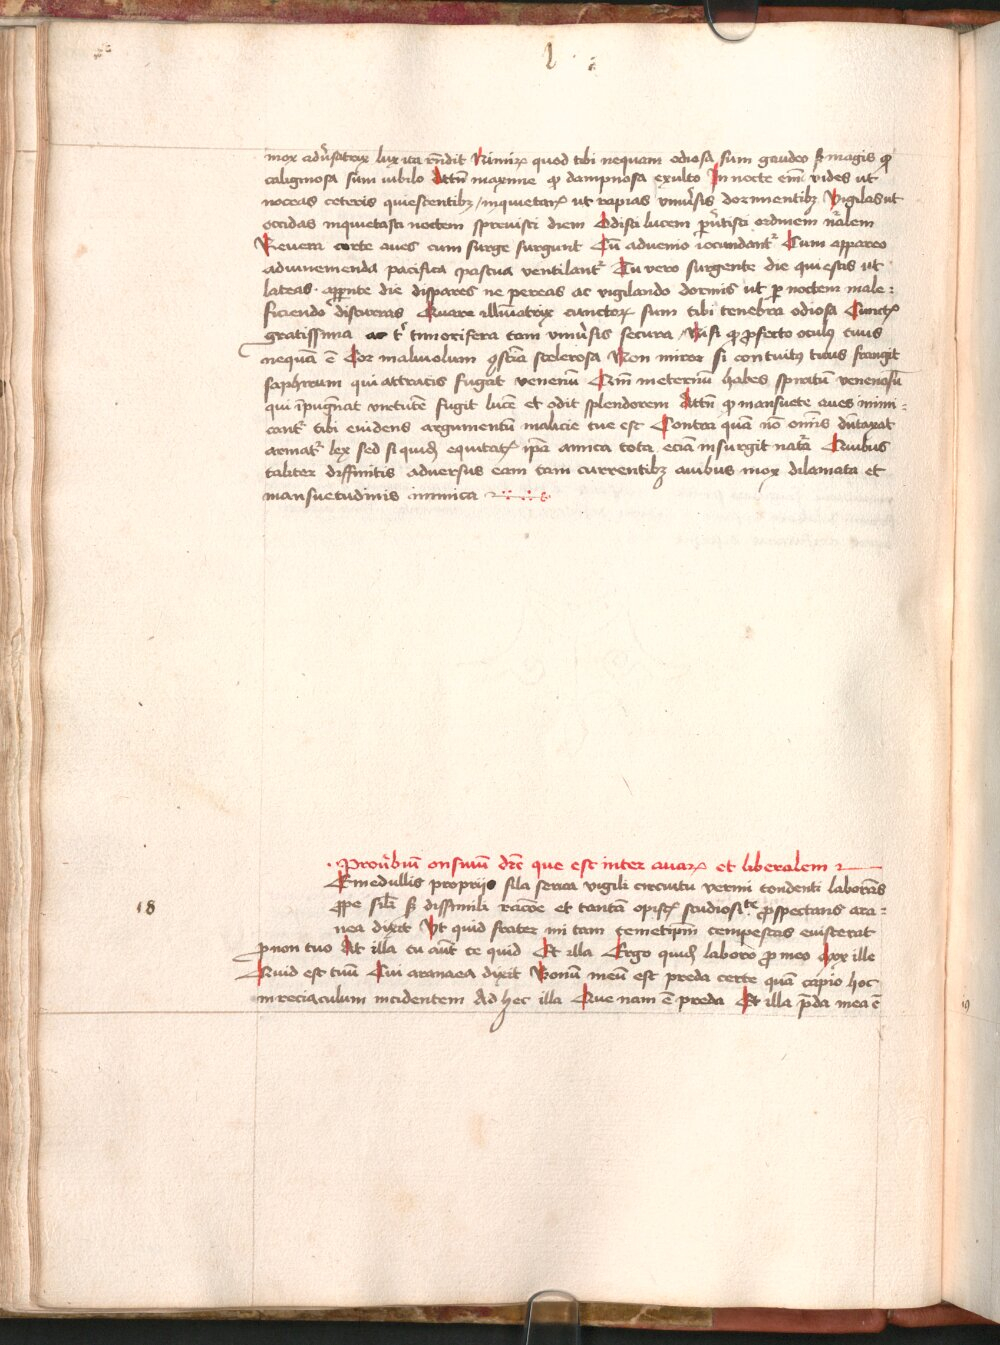 mox adu͛satrix lux ita rn̄dit Nimirꝝ quod tibi nequam odiosa sum gaudeo sꝫ magis ꝙ
caliginosa sum iubilo Attn̄ maxime ꝙ dampnosa exulto In nocte em̄ vides ut
noceas ceteris quiescentibꝫ / inquietarꝭ ut rapias vniu͛sis dormientibꝫ Vigilas ut
occidas inquietasti noctem spreuisti diem Odisti lucem ordinem nr̄alem
Reuera certe aues cum surge surgunt Cū aduenio iocundant᷑ Cum appareo
adunemenda pacifica pascua ventilant᷑ Tu vero surgente die quiescis ut
lateas · die dispares ne pereas ac vigilando dormis ut ꝑ noctem male-
ficiendo discurras Quare illūatrix cunctorꝝ sum tibi tenebra odiosa Cunctꝭ
gratissima ac t᷑ timorifera tam vniu͛sis secura / Nisi ꝙ ꝓfecto oculꝰ tuus
nequā ē Cor maliuolum ꝯsc̄ia scelerosa Non miror si contuitꝰ tuus frangit
saphirum qui attractis fugat venenū habes spiritū venenosū
qui īpugnat virtutē fugit lucē et odit splendorem Attn̄ ꝙ mansuete aues inimi-
cant᷑ tibi euidens argumentū malicie tue est Contra quā nō om̄is dūtaxat
armat᷑ lex sed siquidē equitatꝭ ip̄a amica tota eciā insurgit natr̄a Quibus
taliter diffinitis aduersus eam tam currentibꝫ auibus mox dilaniata et
mansuetudinis inimica
· Prou͛biū dr̄e que est inter auarꝝ et liberalem
E medullis proprijs fila serica vigili circuitu vermi tendenti laborās
ꝓpe sil̄i sꝫ dissimili rac̄oe et tantā opisꝭ studiositatē ꝓspectans ara-
18
nea dixit Ut quid frater mi tam temetipm̄ tempestas euiscerat
ꝓ non tuo At illa tu aūt te quid Et illa Ergo quidē laboro ꝓ meo Mox ille
Quid est tuū Cui aranaea dixit Bonū meū est preda certe quā capio hoc
in reciaculum incidentem Ad hec illa Que nam ē preda Et illa p̄da mea ē
19